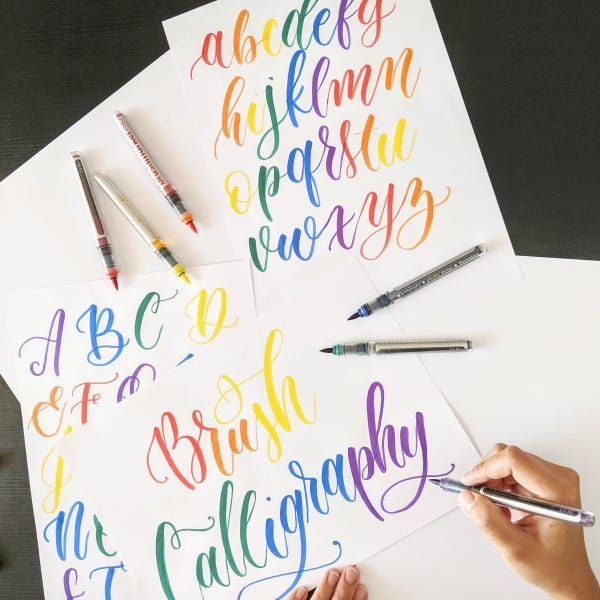 abcdefg
hijklmn
opqrstu
vwxyz
A B C D
E F
N
Brush
Calligraphy